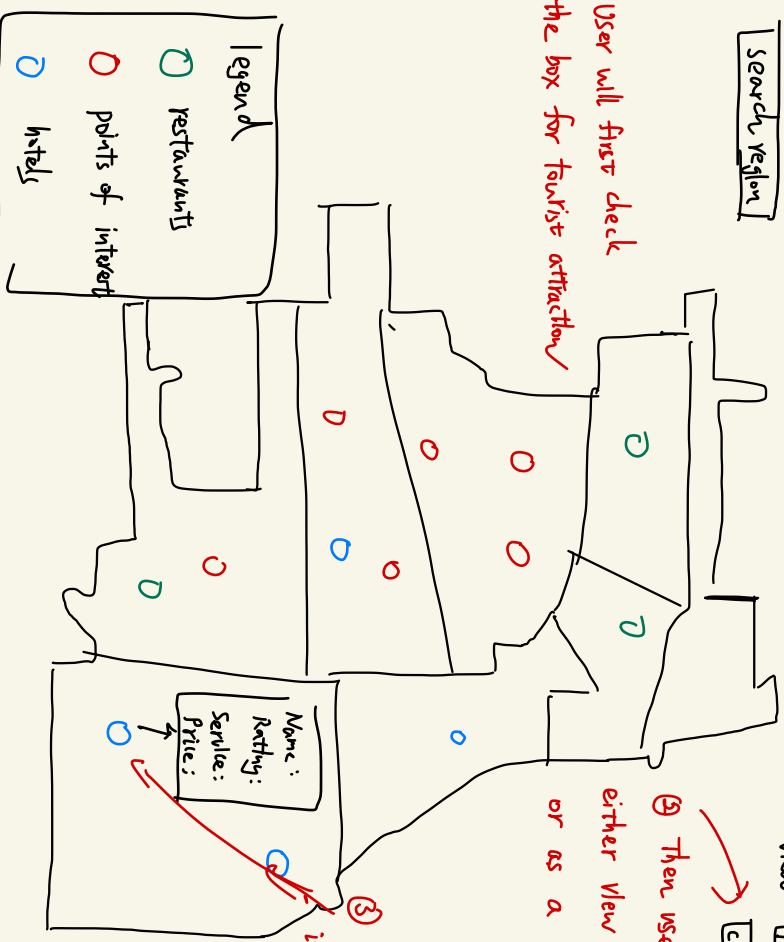 search region
User will first check
the box for tourist attraction
legend
restaurants
points of interest
hotels
Name:
Rating:
Service:
Price:
Then use
either view
or as a
③